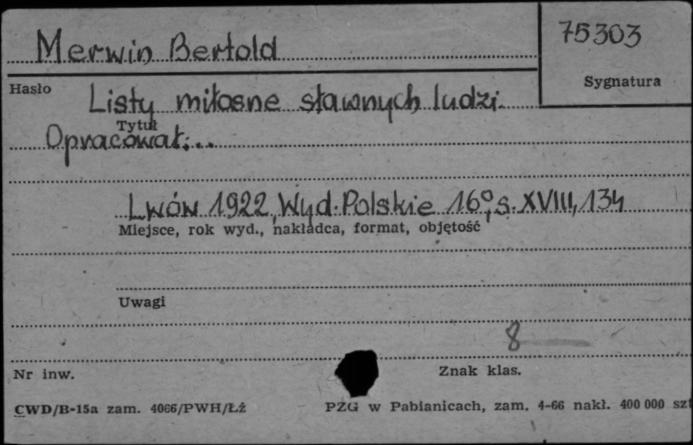 Merwin Bertold
75303
Hasło
Sygnatura
Listy miłosne sławnych ludzi.
Tytuł
Opracował:..
Lwów 1922, Wyd. Polskie 16°, s. XVIII, 134
Miejsce, rok wyd., nakładca, format, objętość
Uwagi
8
Nr inw.
Znak klas.
CWD/B-15a zam. 4066/PWH/Łż
PZG w Pabianicach, zam. 4-66 nakł. 400 000 szt